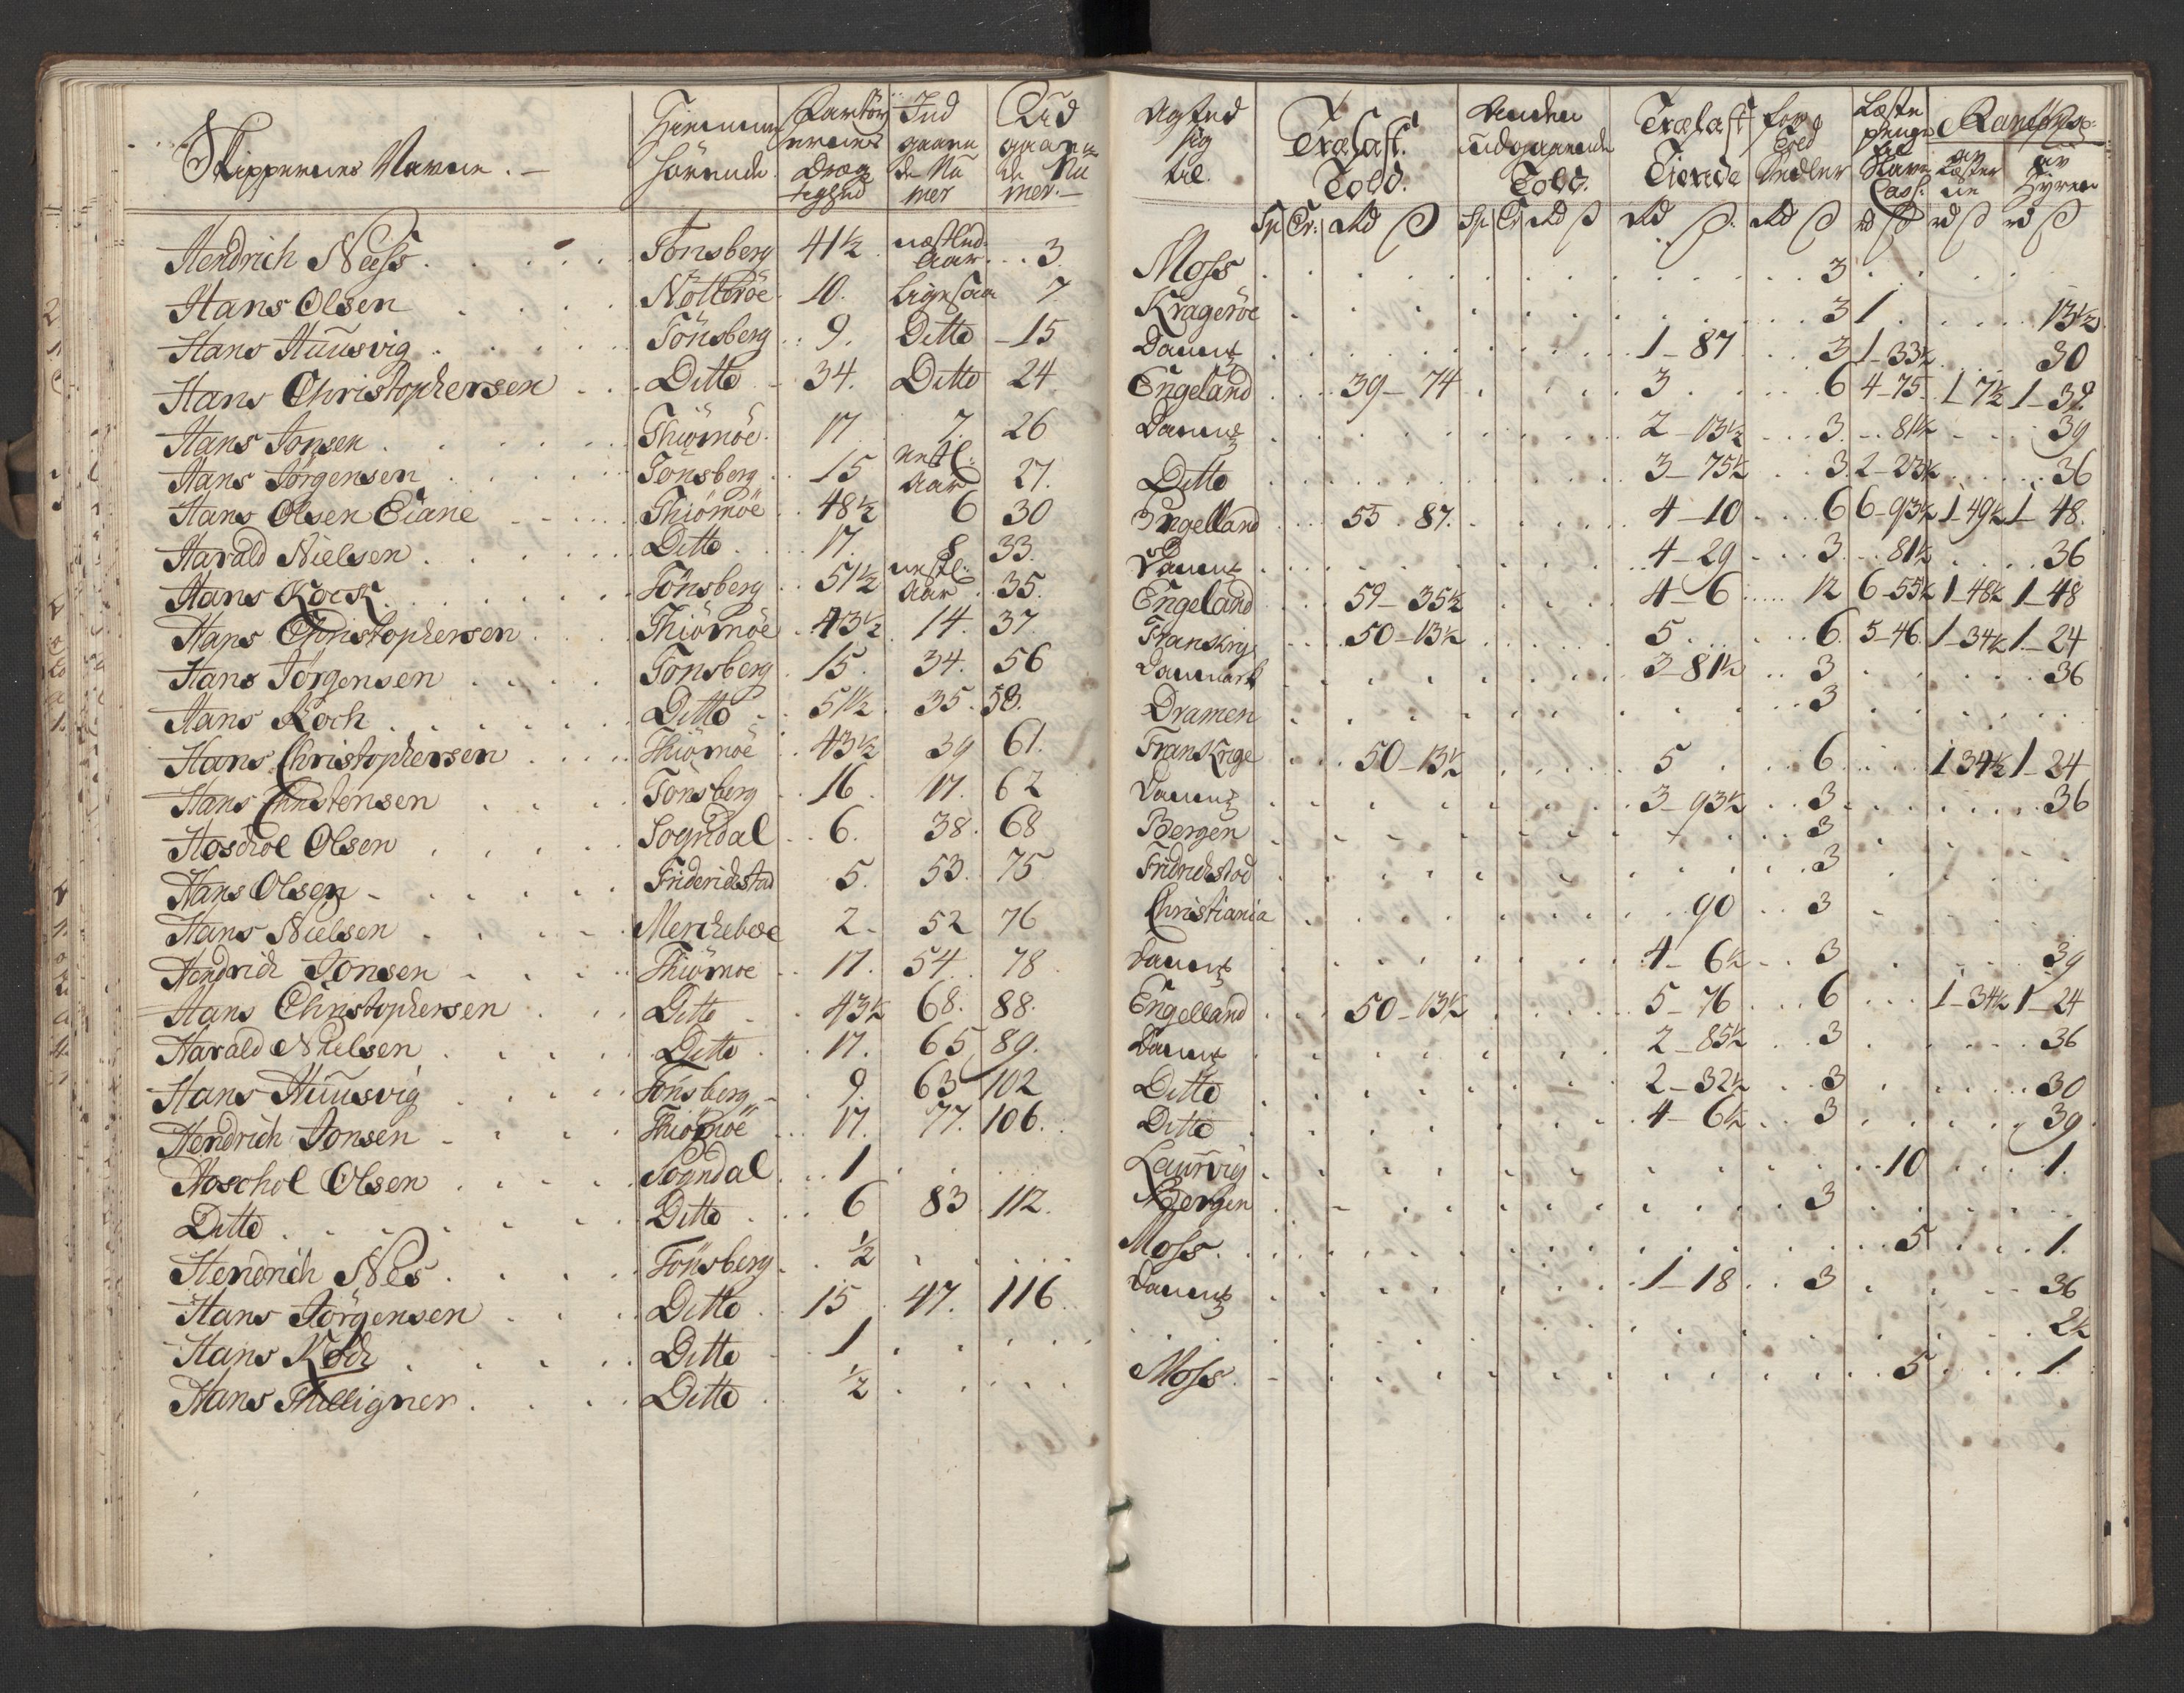 Skippernes Navne. Hiemme hörende. Fartöy ernes Dræg tighed Ind gaaen de Nu mer Ud gaaen de Nu mer. Agted sig til. Trælast Told. Anden udgaaende Told. Trælast Tiende for Told Sedler Læste penge Slave Cass: af Læster ne af Hyren
Sp Cr: Rd ß Sp Cr Rd ß Rd ß Rd ß rd ß rd ß rd ß
Hendrich Neess Tonsberg 41½ næstled: Aar 3 Moss 3
Hans Olsen Nötteröe 10. ligesaa 7 Krageröe 3 1 13½
Hans Huusvig Tönsberg 9. Ditto 15 Danm: 1-87 3 1-33½ 30
Hans Christophersen Ditto 34. Ditto 24 Engeland 39-74 3 6 4-75 1-7½ 1-39
Hans Jonsen Thiömöe 17 7. 26 Danm: 2-13½ 3 81½ 39
Hans Jörgensen Tönsberg 15 nestl: Aar 27. Ditto 3-75½ 3 2-23½ 36
Hans Olsen Eiane Thiömöe 48½ 6 30 Engelland 55 87. 4-10 6 6-93½ 1-49½ 1-48.
Harald Nielsen Ditto 17. 8 33. Danm: 4-29 3 81½ 36
Hans Kock Tönsberg 51½ nestl: Aar 35. Engeland 59-35½ 4-6 12 6-55½ 1-48½ 1-48
Hans Christophersen Thiömöe 43½ 14. 37 Franskrig 50-13½ 5 6 5-46 1-34½ 1-24
Hans Jörgensen Tonsberg 15. 34. 56 Danmark 3-81½ 3 36
Hans Koch Ditto 51½ 35. 58. Dramen 3
Hans Christophersen Thiömöe 43½ 39 61. Franskrige 50-13½ 5 6 1 34½ 1-24
Hans Christensen Tönsberg 16 17. 62 Danm: 3-93½ 3 36
Hoschol Olsen Sogndal 6. 38. 68 Bergen 3
Hans Olsen Friderichstad 5. 53. 75 Fridrichstad 3
Hans Nielsen Mercheböe 2 52 76 Christiania 90 3
Hendrich Jonsen Thiömöe 17. 54. 78 Danm: 4-6½ 3 39
Hans Christophersen Ditto 43½ 68. 88. Engelland 50-13½ 5-76 6 1-34½ 1-24
Harald Nielsen Ditto 17. 65 89. Danm: 2-85½ 3 36
Hans Huusvig Tonsberg 9. 63 102 Ditto 2-32½ 3 30
Hendrich Jonsen Thiömöe 17. 77. 106. Ditto 4-6½ 3 39
Hoschol Olsen Sogndal 1 Laurvig 10 1.
Ditto Ditto 6 83 112. Bergen 3
Hendrich Nes Tönsberg ½ Moss 5 1.
Hans Jörgensen Ditto 15 47. 116 Danm: 1-18 3 36
Hans Koch Ditto 1 2½
Hans Ditto ½ Moss 5 1.